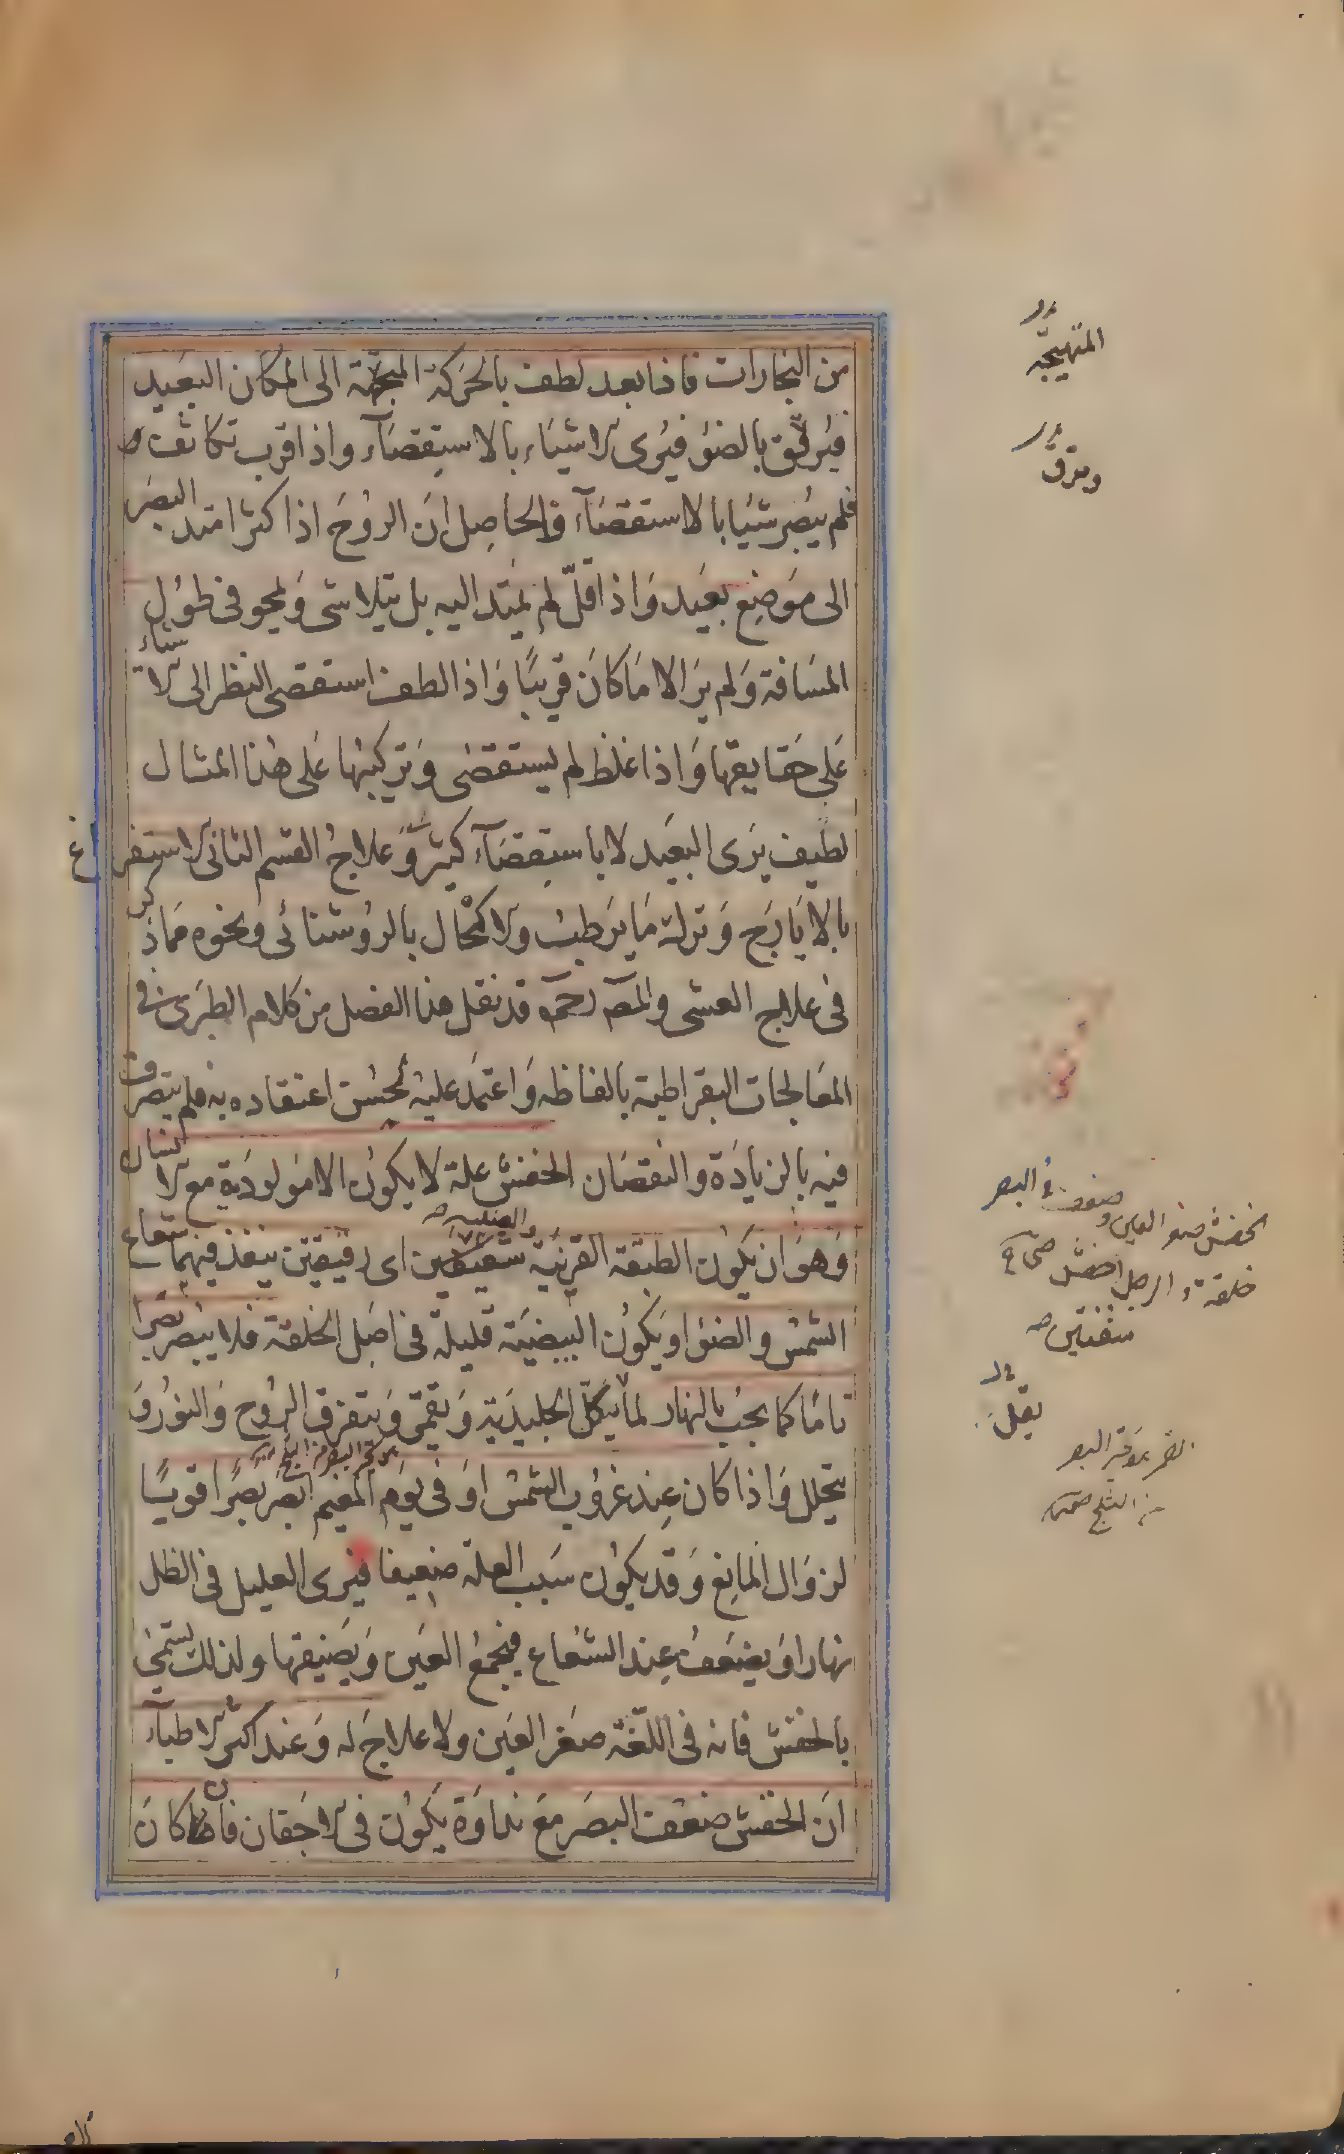 من البخارات فاذا بعد لطف بالحركة المبجهة الى المكان البعيد
فيرقق بالضوء فيرى الاشياء بالاستقصآء واذا قرب تكاثف
فلم يبصر شيئا بالاستقصآء والحاصل ان الروح اذا كثر امتد البصر
الى موضع بعيد واذا قلّ لم يمتد اليه بل يتلاشى ويمحو فى طول
المسافة ولم ير الا ما كان قريبًا واذا لطف استقصى النظر الى الاشياء
على حقايقها واذا غلظ لم يستقصى وتركيبها على هذا المثال
لطيف يرى البعيد لا باستقصآء كثير وعلاج القسم الثانى الاستفراغ
بالايارج وترك ما يرطب والاكتحال بالروشنائى ونحوه مما ذكر
فى علاج العشى والمصـ رحمه قد نقل هذا الفصل من كلام الطبرى فى
المعالجات البقراطية بالفاظه واعتمد عليه لحسن اعتقاده به فلم يتصرف
فيه بالزيادة والنقصان الخفش علة لا يكون الا مولودية مع الانسان
وهو ان يكون الطبقة القرنية والعنبية شفيقتين اى رقيقتين ينفذ فيهما شعاع
الشمس والضوء او يكون البيضية قليلة فى اصل الخلقة فلا يبصر بصرا
تاما كما يجب بالنهار لما يكلّ الجليدية و يتفرق الروح والنور و
يتحلل واذا كان عند غروب الشمس او فى يوم المغيم ابصر بصرًا قويًا
لزوال المانع وقد يكون سبب العلة ضعيفا فيرى العليل فى الظل
نهارا ويضعف عند الشعاع فيجمع العين ويضيقها ولذلك يسمى
بالخفش فانه فى اللغة صغر العين ولا علاج له وعند اكثر الاطبآء
ان الخفش ضعف البصر مع نداوة يكون فى الاجفان فان كان
المتهيجة
ويرق
الخفش صغر العين وضعف فى البصر
خلقة والرجل اخفش صحاح
شفتين
يقلّ